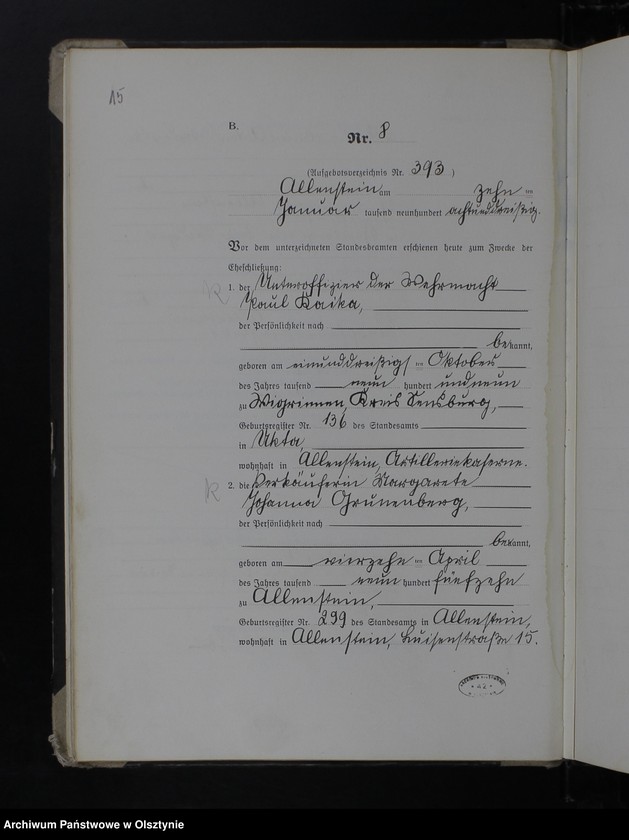 15
B.
Nr. 8
(Aufgebotsverzeichnis Nr. 393)
Allenstein am zehn ten
Januar tausend neunhundert achtunddreißig.
Vor dem unterzeichneten Standesbeamten erschienen heute zum Zwecke der
Eheschließung:
1. der Unteroffizier der Wehrmacht
Paul Kaika,
der Persönlichkeit nach
bekannt,
geboren am einunddreißigs ten Oktober
des Jahres tausend neun hundert undneun
zu Wigrinnen, Kreis Sensburg,
Geburtsregister Nr. 136 des Standesamts
in Ukta,
wohnhaft in Allenstein, Artilleriekaserne.
2. die Verkäuferin Margarete
Johanna Grunenberg,
der Persönlichkeit nach
bekannt,
geboren am vierzehn ten April
des Jahres tausend neun hundert fünfzehn
zu Allenstein,
Geburtsregister Nr. 299 des Standesamts in Allenstein,
wohnhaft in Allenstein, Luisenstraße 15.
Archiwum Państwowe w Olsztynie